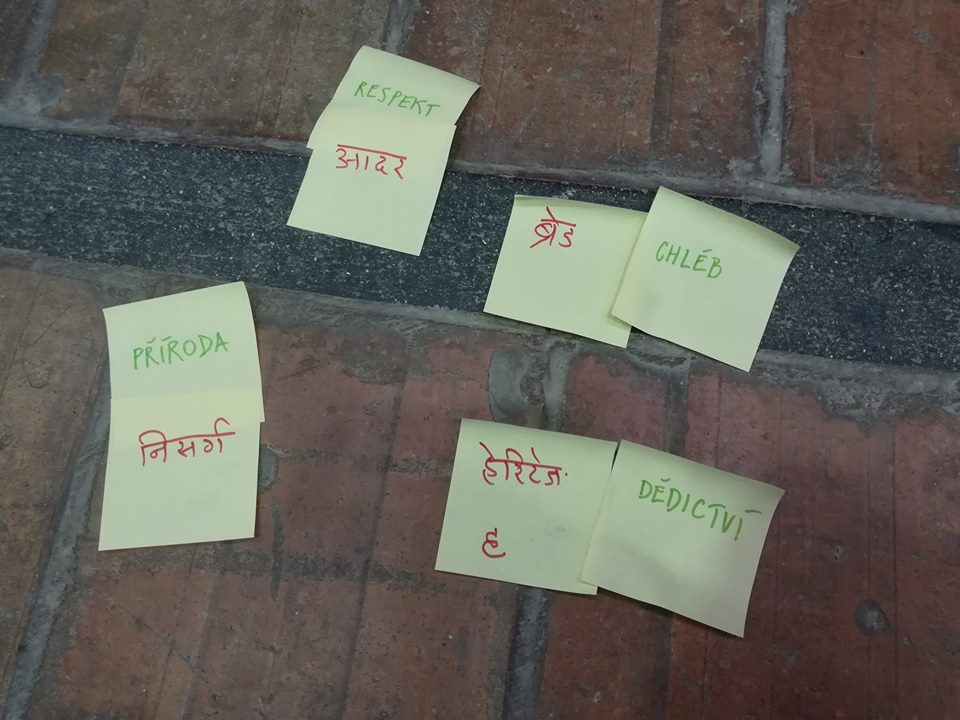 RESPEKT
आदर
ब्रेड
CHLÉB
PŘÍRODA
निसर्ग
हेरिटेज
ह
DĚDICTVÍ